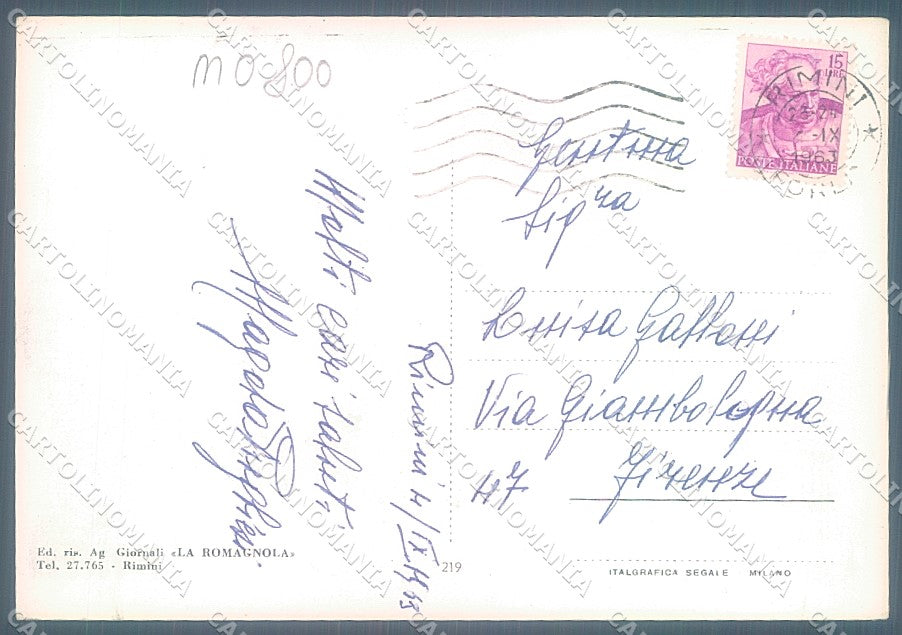 m 0 800
Rimini 4/IX 1963
Molti cari saluti
15
LIRE
POSTE ITALIANE
RIMINI
-IX
1963
Gentma
Sigra
Luisa Gallorri
Via Giambologna
47
Firenze
Ed. ris. Ag Giornali «LA ROMAGNOLA»
Tel. 27.765 - Rimini
219
ITALGRAFICA SEGALE MILANO
CARTOLINOMANIA